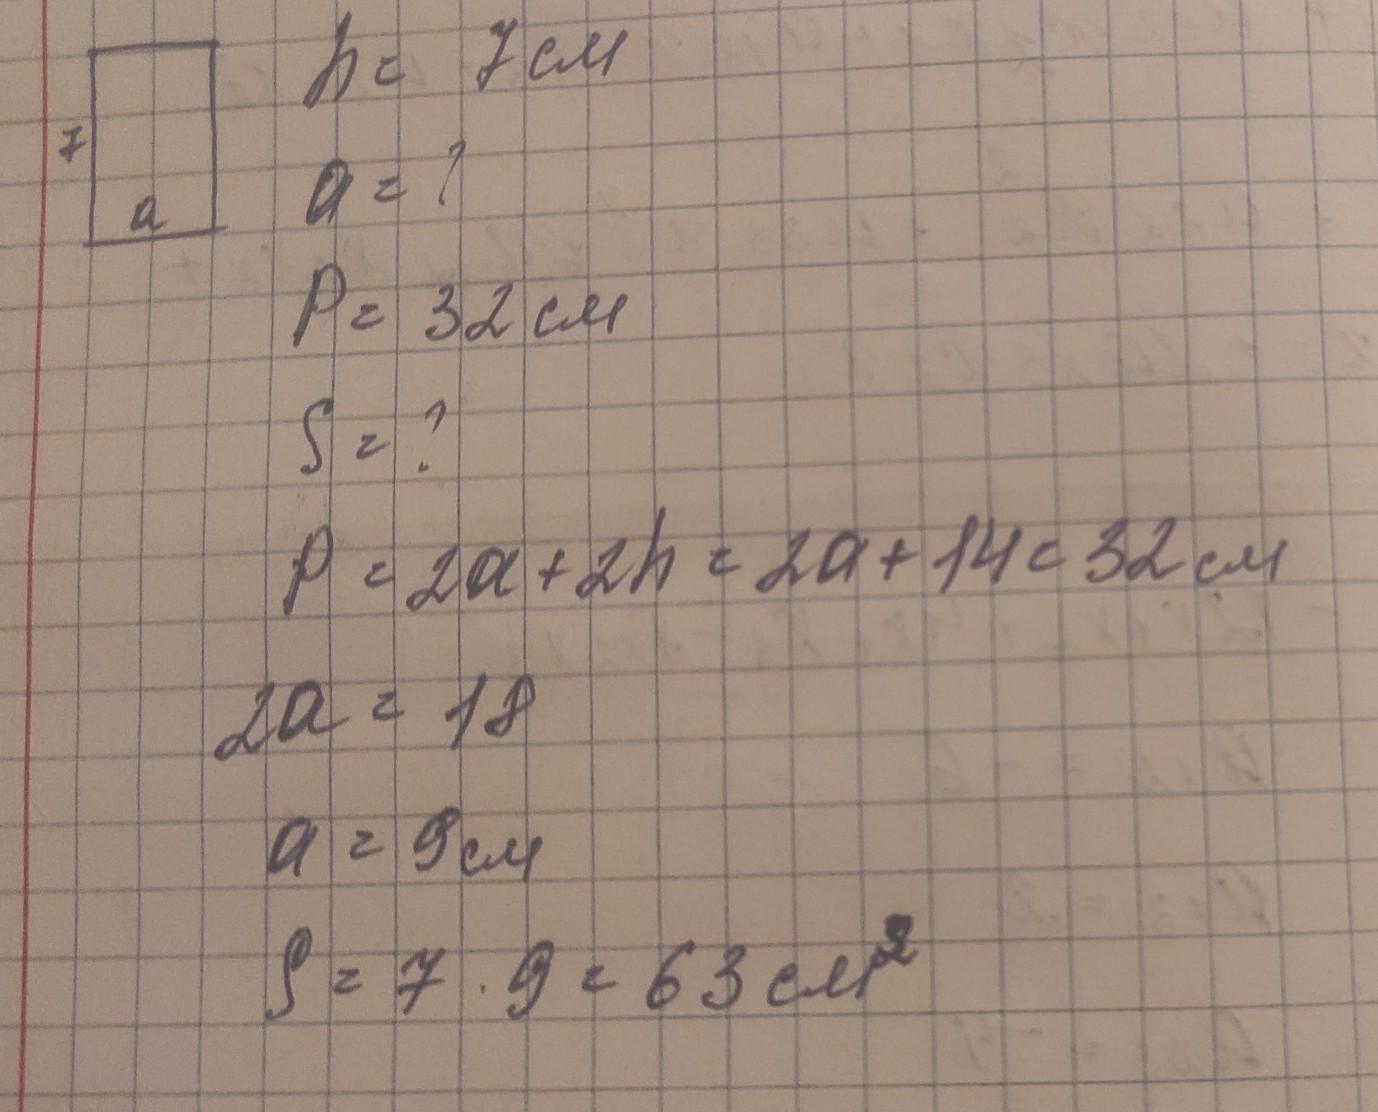 h = 7 см
7
a
a = ?
P = 32 см
S = ?
P = 2a + 2h = 2a + 14 = 32 см
2a = 18
a = 9 см
S = 7 · 9 = 63 см²